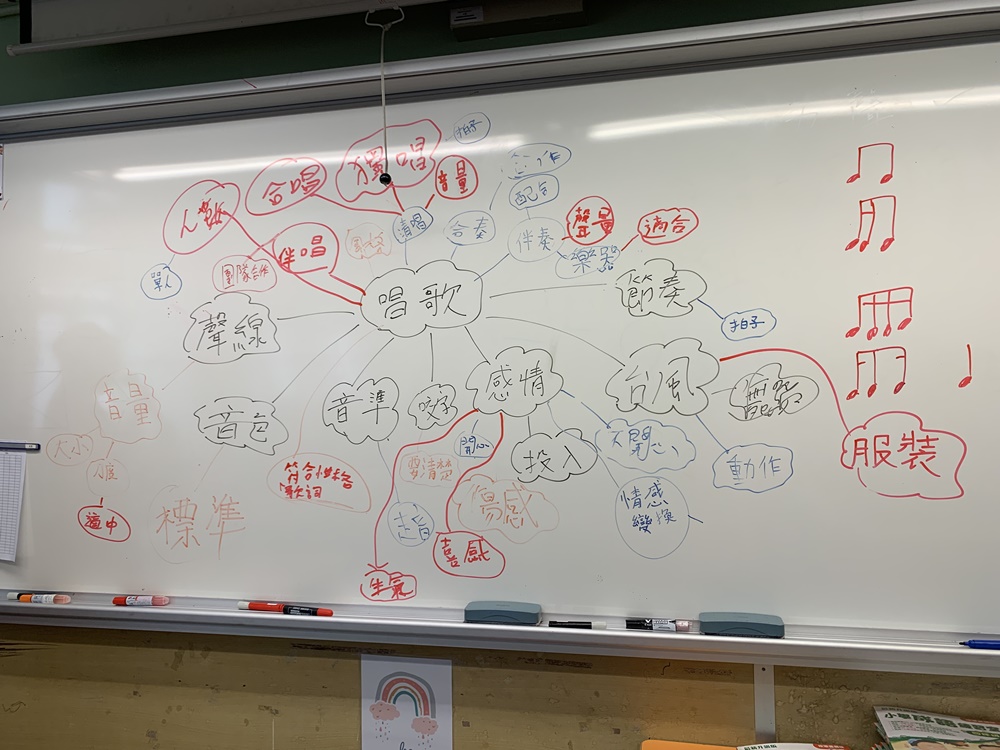 拍子
獨唱
合唱
音量
合作
配合
人數
清唱
合奏
伴奏
聲量
適合
伴唱
風格
樂器
單人
團隊合作
唱歌
節奏
拍子
聲線
台風
感情
音準
咬字
音量
音色
服裝
大小
開心
投入
不開心
動作
要清楚
符合性格
歌詞
適中
標準
走音
傷感
情感
變換
喜感
生氣